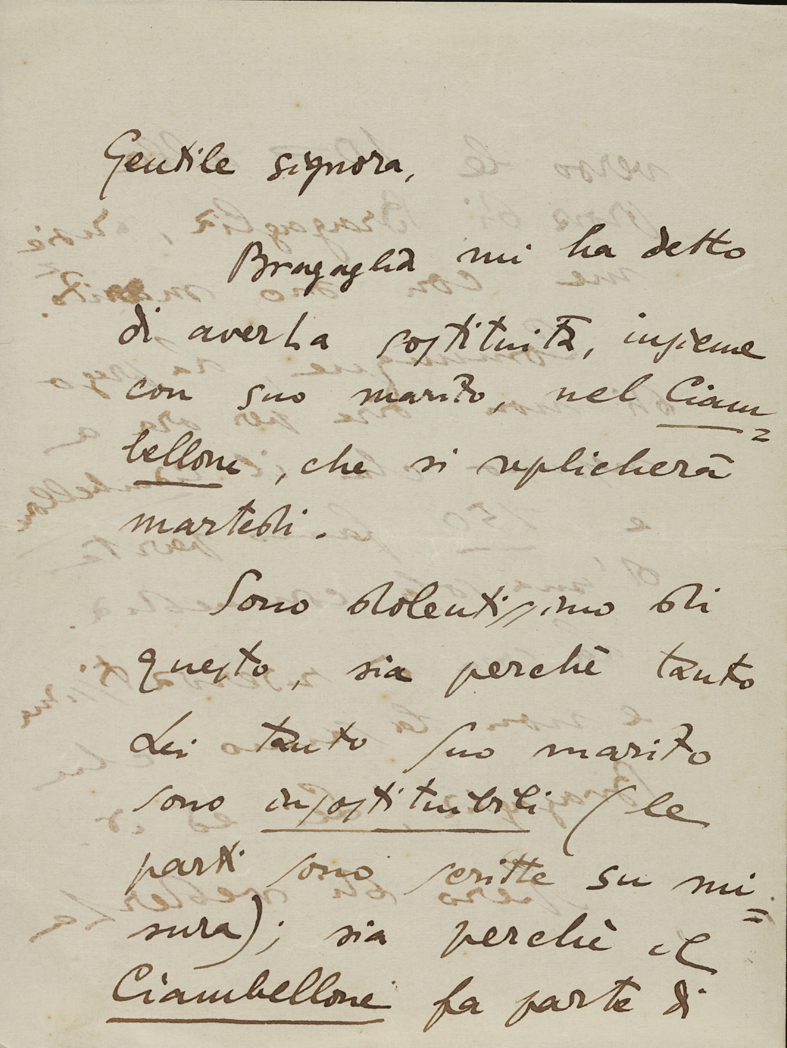 Gentile signora,
Bragaglia mi ha detto
di averLa sostituita, insieme
con suo marito, nel Ciam=
bellone, che si replicherà
martedi.
Sono dolentissimo di
questo, sia perchè tanto
Lei tanto suo marito
sono insostituibili (le
parti sono scritte su mi=
sura); sia perchè il
Ciambellone fa parte di